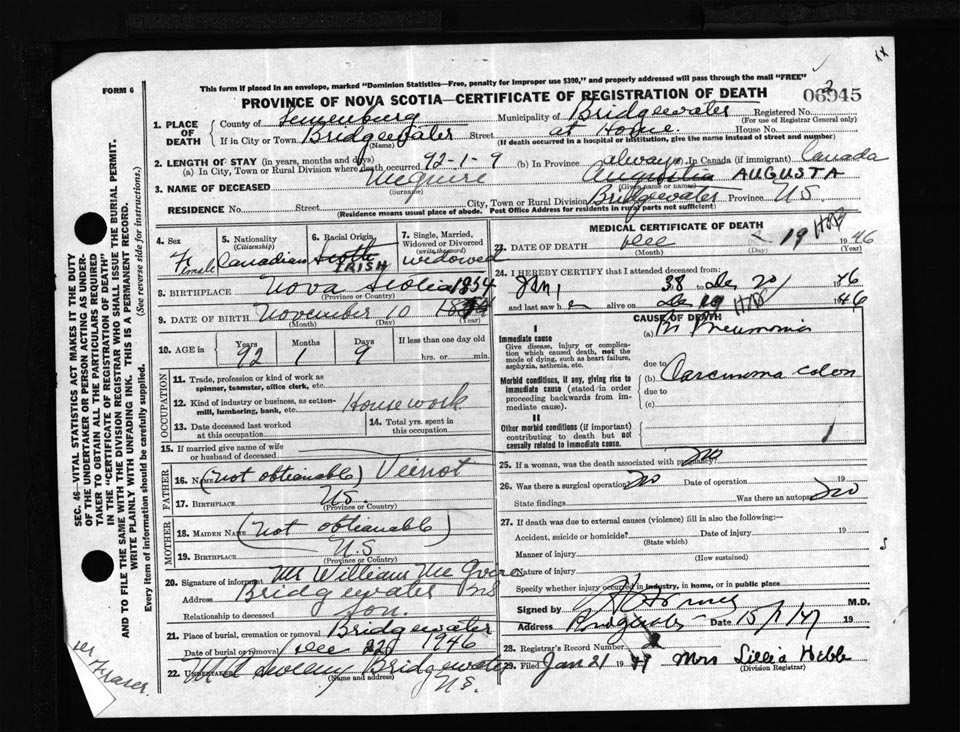 This form if placed in an envelope, marked "Dominion Statistics—Free, penalty for improper use $300," and properly addressed will pass through the mail "FREE"
FORM 6
PROVINCE OF NOVA SCOTIA—CERTIFICATE OF REGISTRATION OF DEATH
06945
1. PLACE OF DEATH
County of Lunenburg Municipality of Bridgewater Registered No.
(For use of Registrar General only)
If in City or Town Bridgewater Street at Home House No.
(Name) (If death occurred in a hospital or institution, give the name instead of street and number)
2. LENGTH OF STAY (in years, months and days)
(a) In City, Town or Rural Division where death occurred 92-1-9 (b) In Province always In Canada (if immigrant) Canada
3. NAME OF DECEASED McGuire Augustia AUGUSTA
(Surname) (Given name or names)
RESIDENCE No. Street City, Town or Rural Division Bridgewater Province N.S.
(Residence means usual place of abode. Post Office Address for residents in rural parts not sufficient)
4. Sex Female
5. Nationality (Citizenship) Canadian
6. Racial Origin Scotch IRISH
7. Single, Married, Widowed or Divorced (write the word) widowed
8. BIRTHPLACE Nova Scotia 1854
(Province or Country)
9. DATE OF BIRTH November 10
(Month) (Day) (Year)
10. AGE in Years Months Days If less than one day old
92 1 9 hrs. or min.
OCCUPATION
11. Trade, profession or kind of work as spinner, teamster, office clerk, etc.
12. Kind of industry or business, as cotton-mill, lumbering, bank, etc. Housework
13. Date deceased last worked at this occupation
14. Total yrs. spent in this occupation
15. If married give name of wife or husband of deceased
FATHER
16. Name (not obtianable) Veinot
17. Birthplace N.S.
(Province or Country)
MOTHER
18. MAIDEN NAME (not obtianable)
19. BIRTHPLACE N.S
(Province or Country)
20. Signature of informant Mr William McGuire
Address Bridgewater NS
Relationship to deceased son.
21. Place of burial, cremation or removal Bridgewater
Date of burial or removal Dec 22 1946
22. UNDERTAKER Bridgewater
(Name and address)
N.S.
MEDICAL CERTIFICATE OF DEATH
23. DATE OF DEATH Dec 19 1946
(Month) (Day) (Year)
24. I HEREBY CERTIFY that I attended deceased from:
Jan 1 38 to Dec 20 1946
and last saw h alive on Dec 19 1946
CAUSE OF DEATH
I
Immediate cause
Give disease, injury or complication which caused death, not the mode of dying, such as heart failure, asphyxia, asthenia, etc.
(a) Br Pneumonia
due to
Morbid conditions, if any, giving rise to immediate cause (stated in order proceeding backwards from immediate cause).
(b) Carcinoma colon
due to
(c)
II
Other morbid conditions (if important) contributing to death but not causally related to immediate cause.
25. If a woman, was the death associated with pregnancy? no
26. Was there a surgical operation no Date of operation 19
State findings Was there an autopsy no
27. If death was due to external causes (violence) fill in also the following:—
Accident, suicide or homicide? Date of injury 19
(State which)
Manner of injury
(How sustained)
Nature of injury
Specify whether injury occurred in industry, in home, or in public place
Signed by M.D.
Address Bridgewater Date 15/1/47 19
28. Registrar's Record Number
29. Filed Jan 21 1947 Mrs Lillia Hebb
(Division Registrar)
SEC. 46—VITAL STATISTICS ACT MAKES IT THE DUTY OF THE UNDERTAKER OR PERSON ACTING AS UNDERTAKER TO OBTAIN ALL THE PARTICULARS REQUIRED IN THE "CERTIFICATE OF REGISTRATION OF DEATH" AND TO FILE THE SAME WITH THE DIVISION REGISTRAR WHO SHALL ISSUE THE BURIAL PERMIT.
WRITE PLAINLY WITH UNFADING INK. THIS IS A PERMANENT RECORD.
Every item of information should be carefully supplied. (See reverse side for instructions.)